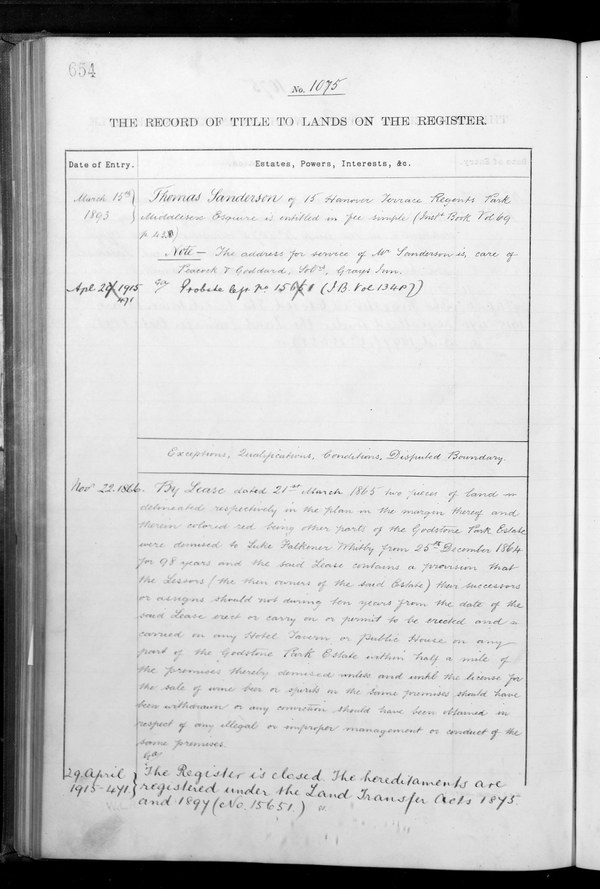 654
No. 1075
THE RECORD OF TITLE TO LANDS ON THE REGISTER.
Date of Entry.
Estates, Powers, Interests, &c.
March 15th 1893
Thomas Sanderson of 15 Hanover Terrace Regents Park
Middlesex Esquire is entitled in fee simple (Inst. Book Vol 69
p 45
Note — The address for service of Mr Sanderson is, care of
Peacock & Goddard, Solrs, Grays Inn.
Apl 29 1915
471
For Probate
(I B Vol 134
Exceptions, Qualifications, Conditions, Disputed Boundary.
Novr 22. 1866.
By Lease dated 21st March 1865 two pieces of land
delineated respectively in the plan in the margin thereof and
therein colored red being other parts of the Godstone Park Estate
were demised to Luke Falkoner Whitby from 25th December 1864
for 98 years and the said Lease contains a provision that
the Lessors (the then owners of the said Estate) their successors
or assigns should not during ten years from the date of the
said Lease erect or carry on or permit to be erected and
carried on any Hotel Tavern or Public House on any
part of the Godstone Park Estate within half a mile of
the premises thereby demised unless and until the license for
the sale of wine beer or spirits on the same premises should have
been withdrawn or any conviction should have been obtained in
respect of any illegal or improper management or conduct of the
same premises.
29 April
1915-471
The Register is closed. The hereditaments are
registered under the Land Transfer Acts 1875
and 1897 (No. 15651.)